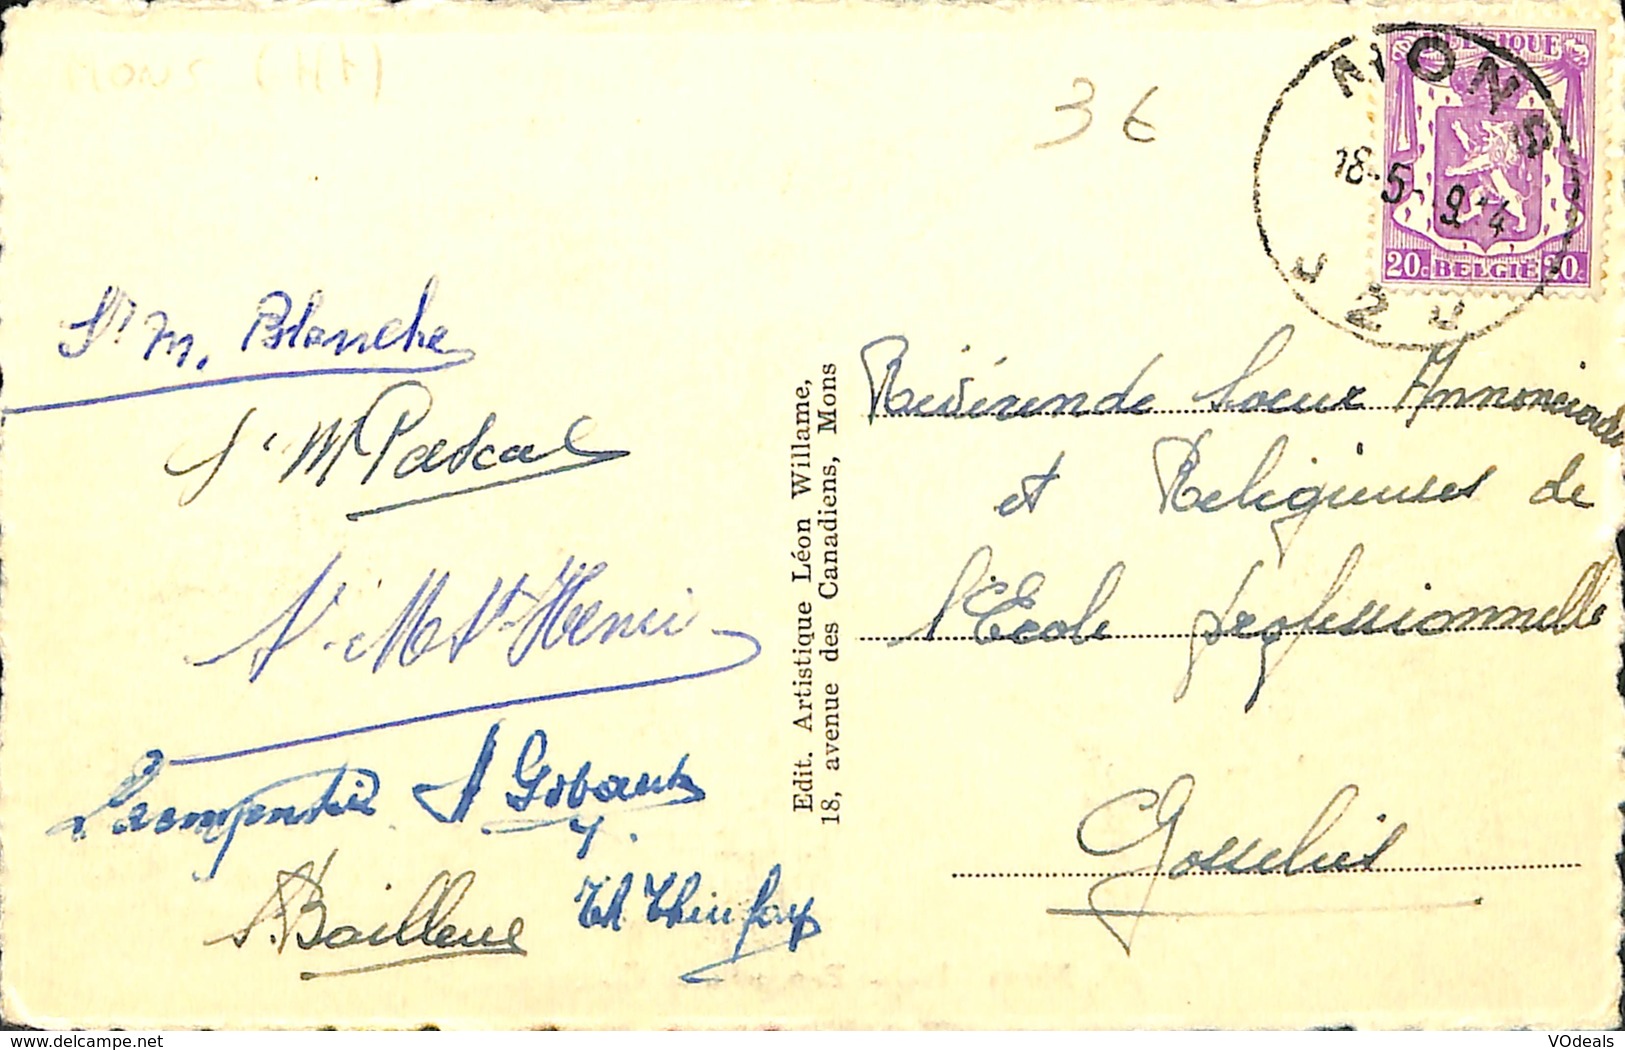 3 €
MONS
18-5-
BELGIQUE
20c BELGIË 20c
Sr M. Blanche
Sr M Pascal
Sr M St Henri
A Gobaux
Bailleux
Edit. Artistique Léon Willame,
18, avenue des Canadiens, Mons
Révérende Soeur Annonciade
et Religieuses de
l'Ecole professionnelle
Gosselies
VOdeals